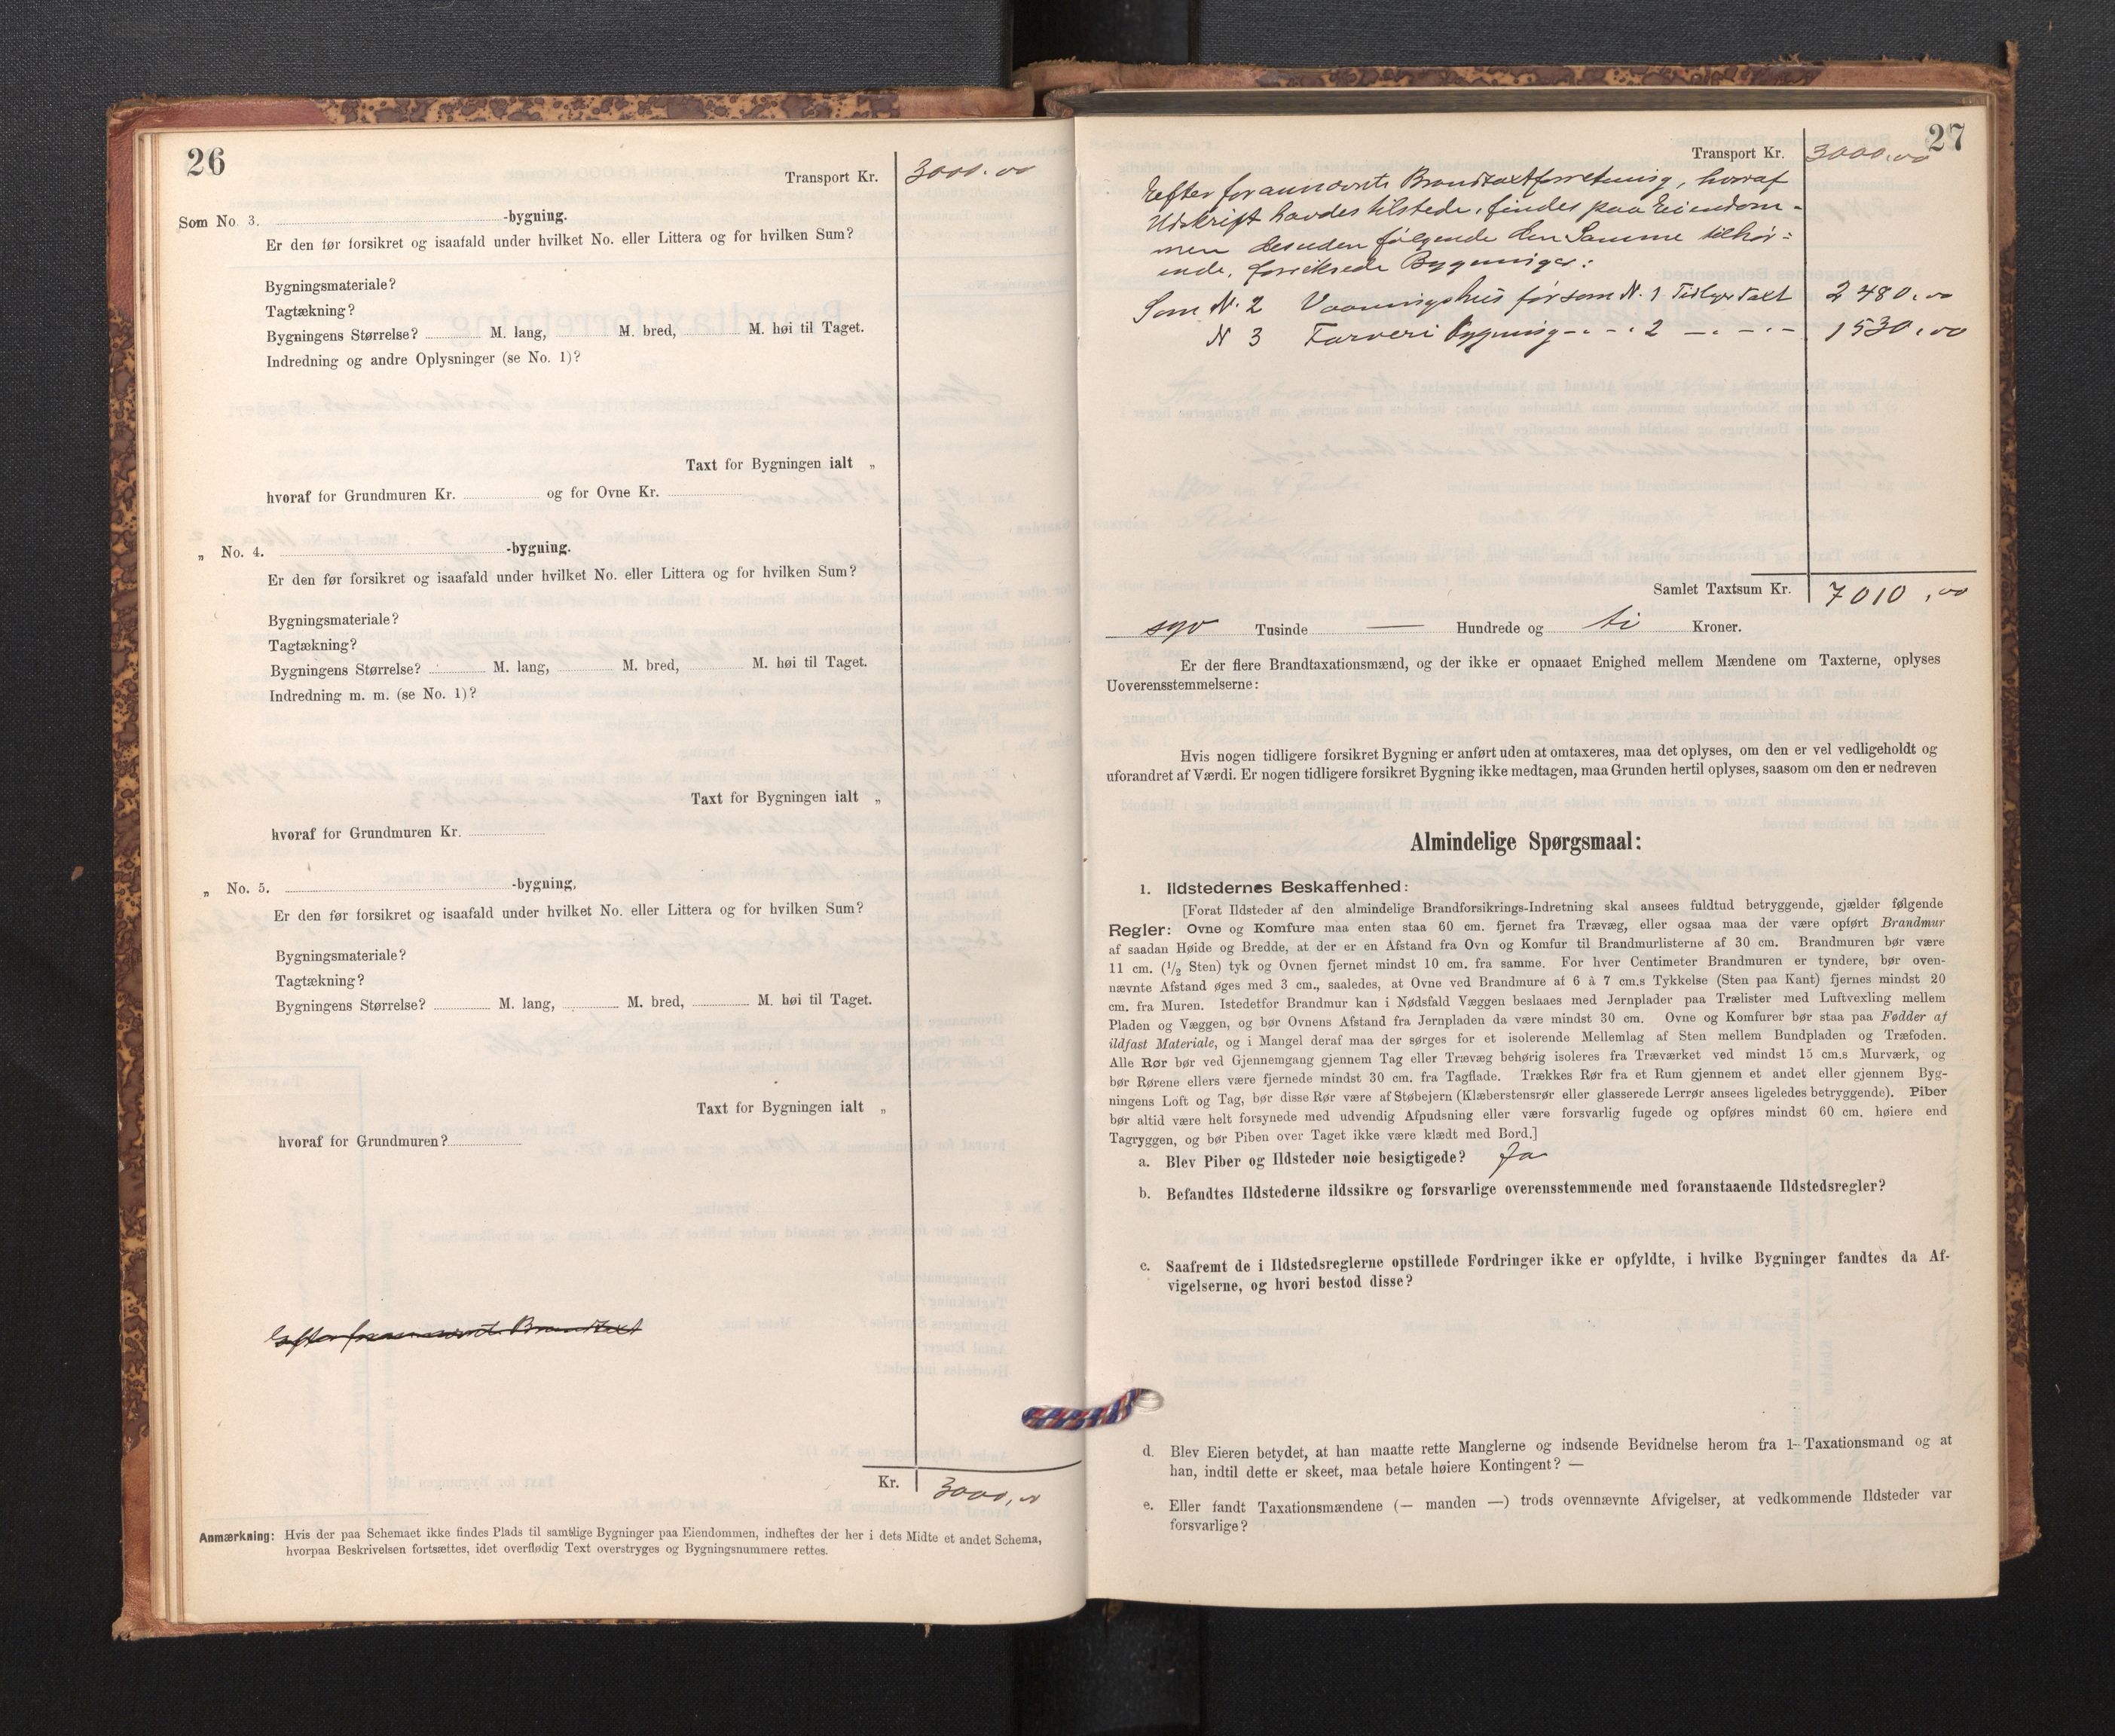 26
Transport Kr. 3000.00
Som No. 3. -bygning.
Er den før forsikret og isaafald under hvilket No. eller Littera og for hvilken Sum?
Bygningsmateriale?
Tagtækning?
Bygningens Størrelse? M. lang, M. bred, M. høi til Taget.
Indredning og andre Oplysninger (se No. 1)?
Taxt for Bygningen ialt „
hvoraf for Grundmuren Kr. og for Ovne Kr.
„ No. 4. -bygning.
Er den før forsikret og isaafald under hvilket No. eller Littera og for hvilken Sum?
Bygningsmateriale?
Tagtækning?
Bygningens Størrelse? M. lang, M. bred, M. høi til Taget.
Indredning m. m. (se No. 1)?
Taxt for Bygningen ialt „
hvoraf for Grundmuren Kr.
„ No. 5. -bygning,
Er den før forsikret og isaafald under hvilket No. eller Littera og for hvilken Sum?
Bygningsmateriale?
Tagtækning?
Bygningens Størrelse? M. lang, M. bred, M. høi til Taget.
Taxt for Bygningen ialt „
hvoraf for Grundmuren?
Efter forannævnt Brandtaxt
Kr. 3000,00
Anmærkning: Hvis der paa Schemaet ikke findes Plads til samtlige Bygninger paa Eiendommen, indheftes der her i dets Midte et andet Schema,
hvorpaa Beskrivelsen fortsættes, idet overflødig Text overstryges og Bygningsnummere rettes.
27
Transport Kr. 3000.00
Efter forannævnte Brandtaxtforretning, hvoraf
Udskrift havdes tilstede, findes paa Eiendom-
men desuden følgende den Samme tilhør-
ende, forsikrede Bygninger:
Som N. 2 Vaaningshus før som N. 1 Tidligere Taxt 2480.00
N 3 Farveri Bygning - . - . 2 - . - . - 1530.00
Samlet Taxtsum Kr. 7010,00
syv Tusinde — Hundrede og ti Kroner.
Er der flere Brandtaxationsmænd, og der ikke er opnaaet Enighed mellem Mændene om Taxterne, oplyses
Uoverensstemmelserne:
Hvis nogen tidligere forsikret Bygning er anført uden at omtaxeres, maa det oplyses, om den er vel vedligeholdt og
uforandret af Værdi. Er nogen tidligere forsikret Bygning ikke medtagen, maa Grunden hertil oplyses, saasom om den er nedreven
Almindelige Spørgsmaal:
1. Ildstedernes Beskaffenhed:
[Forat Ildsteder af den almindelige Brandforsikrings-Indretning skal ansees fuldtud betryggende, gjælder følgende
Regler: Ovne og Komfure maa enten staa 60 cm. fjernet fra Trævæg, eller ogsaa maa der være opført Brandmur
af saadan Høide og Bredde, at der er en Afstand fra Ovn og Komfur til Brandmurlisterne af 30 cm. Brandmuren bør være
11 cm. (1/2 Sten) tyk og Ovnen fjernet mindst 10 cm. fra samme. For hver Centimeter Brandmuren er tyndere, bør oven-
nævnte Afstand øges med 3 cm., saaledes, at Ovne ved Brandmure af 6 à 7 cm.s Tykkelse (Sten paa Kant) fjernes mindst 20
cm. fra Muren. Istedetfor Brandmur kan i Nødsfald Væggen beslaaes med Jernplader paa Trælister med Luftvexling mellem
Pladen og Væggen, og bør Ovnens Afstand fra Jernpladen da være mindst 30 cm. Ovne og Komfurer bør staa paa Fødder af
ildfast Materiale, og i Mangel deraf maa der sørges for et isolerende Mellemlag af Sten mellem Bundpladen og Træfoden.
Alle Rør bør ved Gjennemgang gjennem Tag eller Trævæg behørig isoleres fra Træværket ved mindst 15 cm.s Murværk, og
bør Rørene ellers være fjernede mindst 30 cm. fra Tagflade. Trækkes Rør fra et Rum gjennem et andet eller gjennem Byg-
ningens Loft og Tag, bør disse Rør være af Støbejern (Klæberstensrør eller glasserede Lerrør ansees ligeledes betryggende). Piber
bør altid være helt forsynede med udvendig Afpudsning eller være forsvarlig fugede og opføres mindst 60 cm. høiere end
Tagryggen, og bør Piben over Taget ikke være klædt med Bord.]
a. Blev Piber og Ildsteder nøie besigtigede? Ja
b. Befandtes Ildstederne ildssikre og forsvarlige overensstemmende med foranstaaende Ildstedsregler?
c. Saafremt de i Ildstedsreglerne opstillede Fordringer ikke er opfyldte, i hvilke Bygninger fandtes da Af-
vigelserne, og hvori bestod disse?
d. Blev Eieren betydet, at han maatte rette Manglerne og indsende Bevidnelse herom fra 1 Taxationsmand og at
han, indtil dette er skeet, maa betale høiere Kontingent? —
e. Eller fandt Taxationsmændene (— manden —) trods ovennævnte Afvigelser, at vedkommende Ildsteder var
forsvarlige?